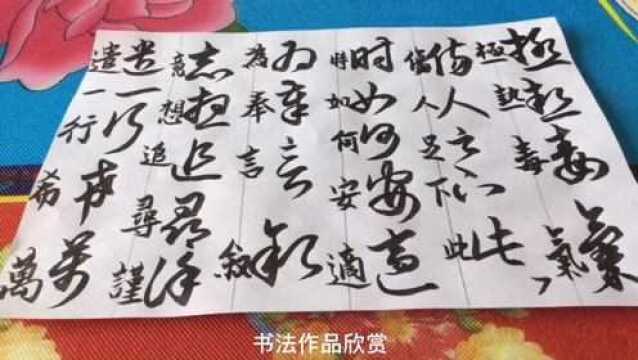 極熱毒氣
極熱毒氣
傷人足下此
傷人足下此
时如何安適
時如何安適
為奉言叙
為奉言敘
意想追尋謹
意想追尋謹
遣一行希萬
遣一行希萬
书法作品欣赏